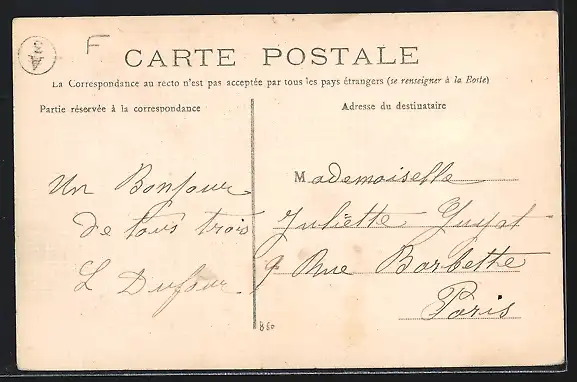 F
CARTE POSTALE
La Correspondance au recto n'est pas acceptée par tous les pays étrangers (se renseigner à la Poste)
Partie réservée à la correspondance
Adresse du destinataire
Un Bonjour
de tous trois
L Dufour
Mademoiselle
Juliette
9 Rue Barbette
Paris